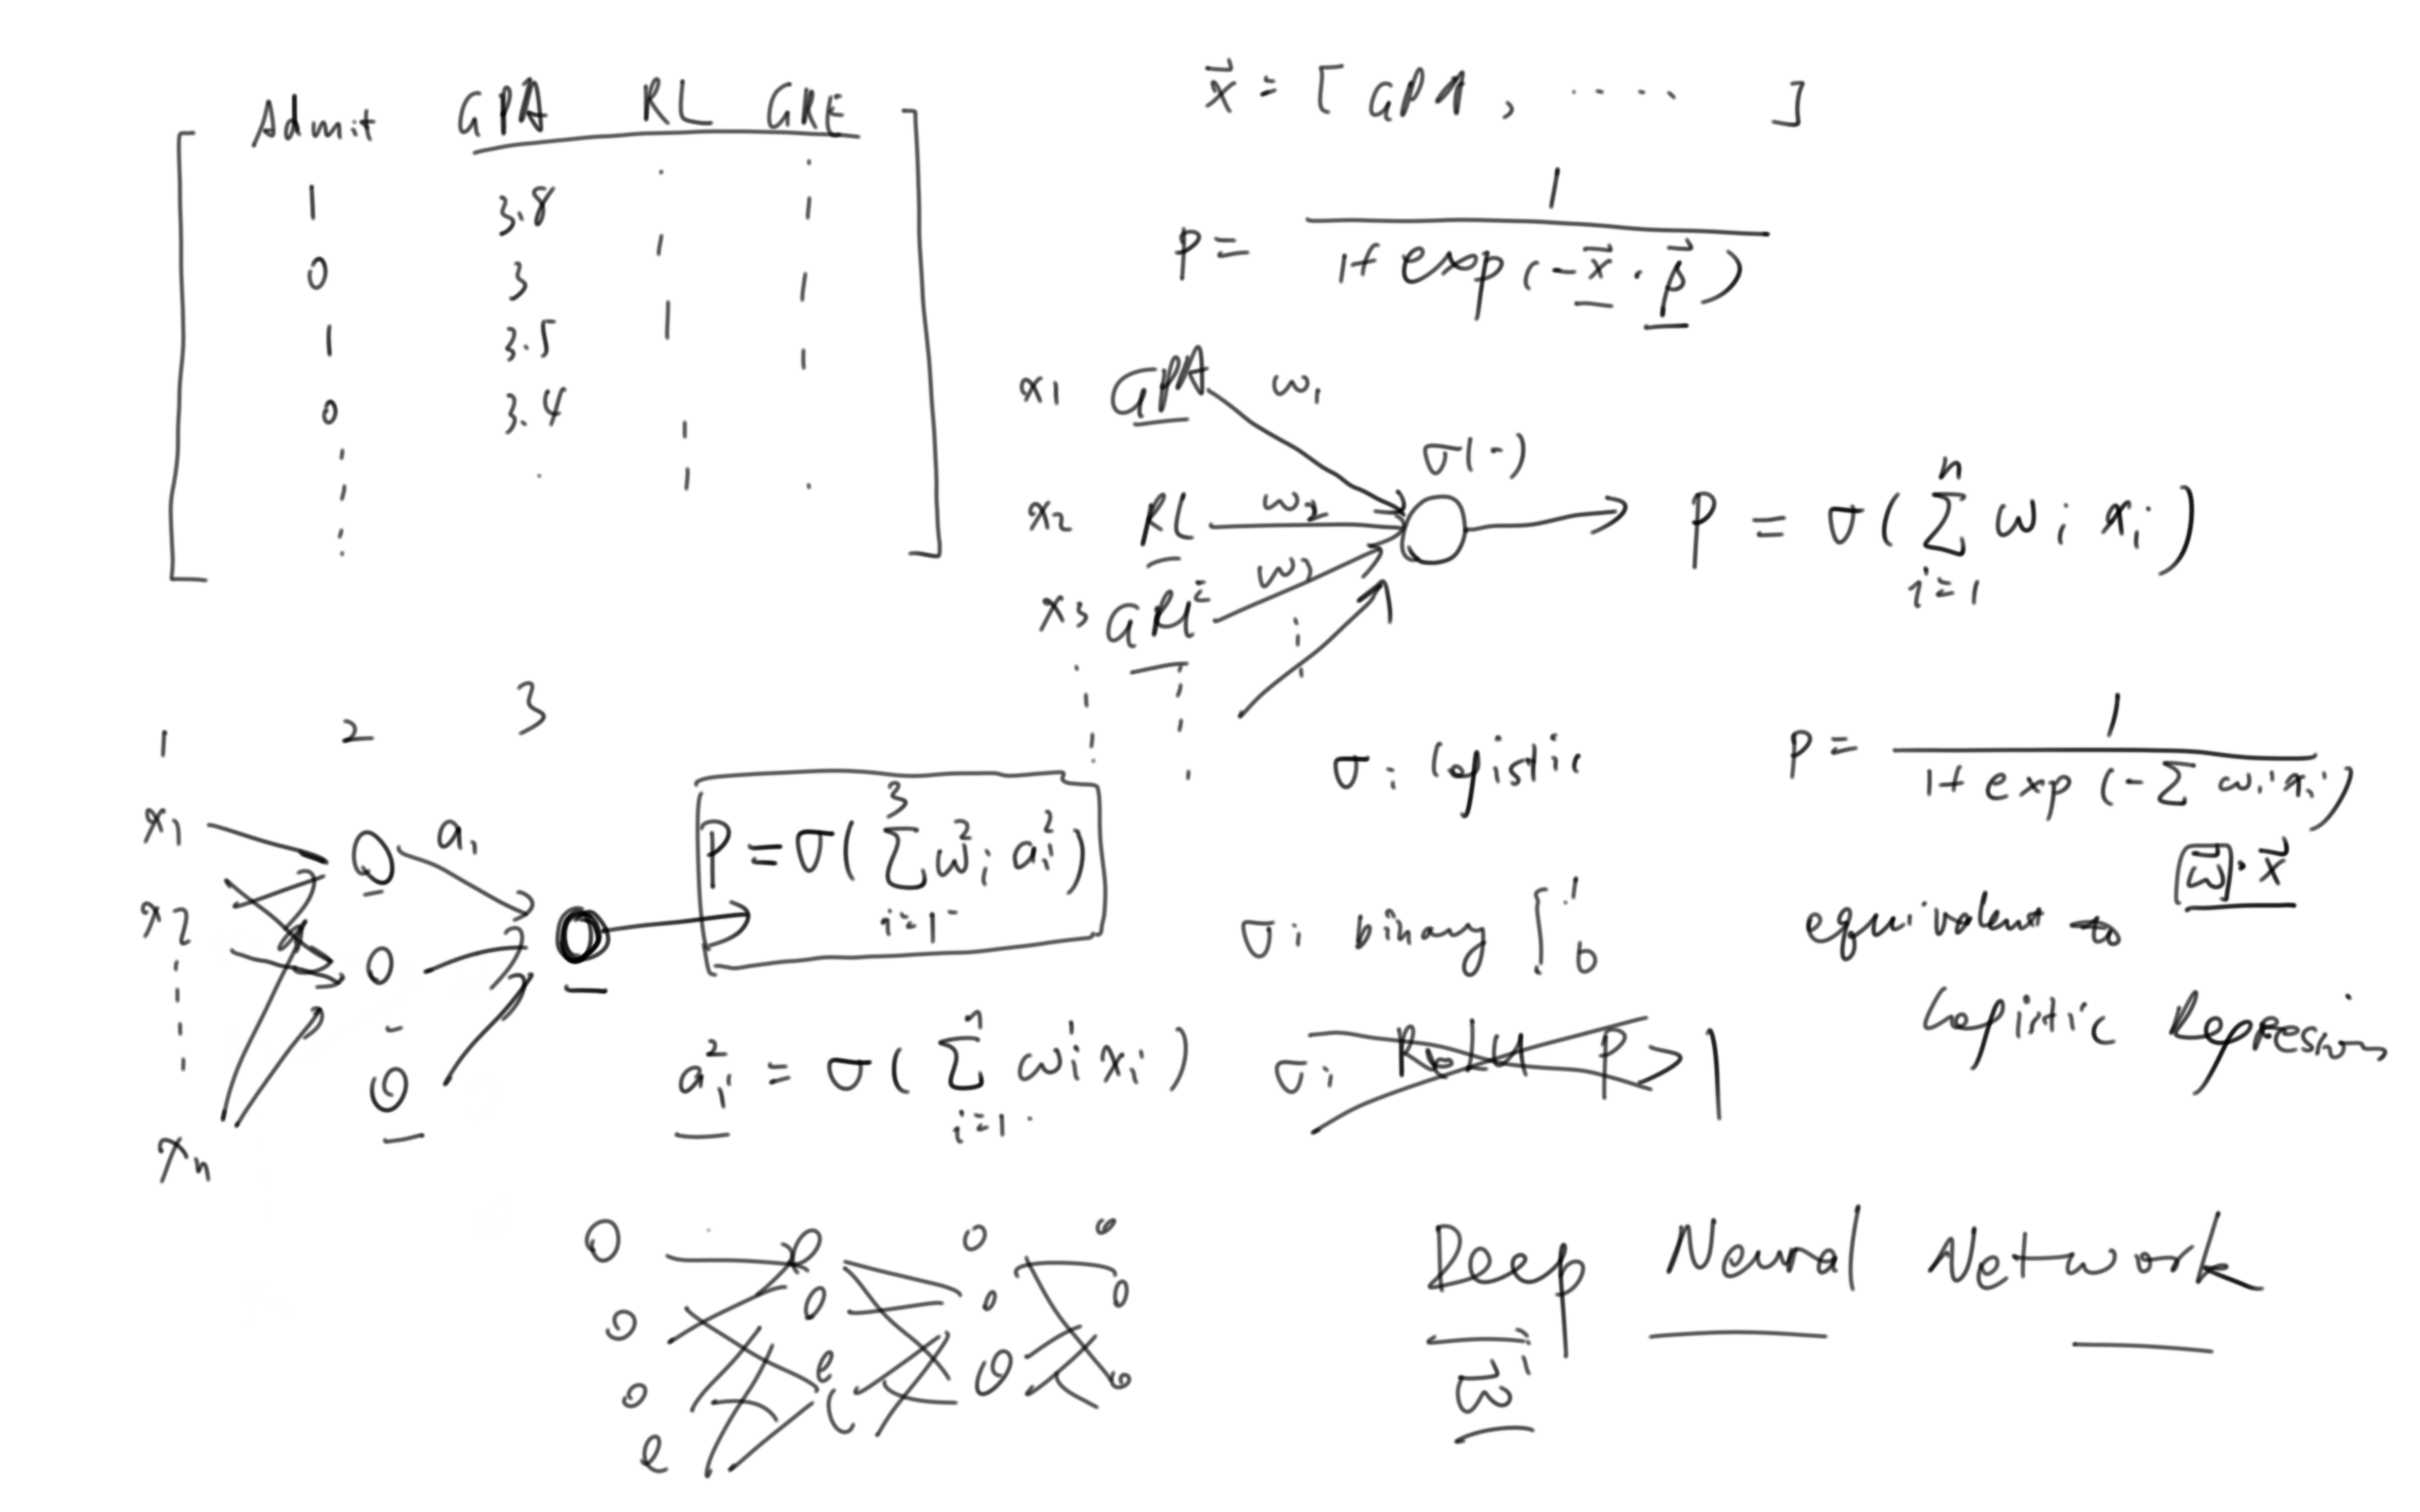 Admit GPA RL GRE
1 3.8
0 3
1 3.5
0 3.4
x⃗ = [ GPA, ..... ]
P = 1 / 1 + exp(-x⃗ · β⃗)
x1 GPA w1
x2 RL w2
x3 GRE w3
σ(-)
P = σ( Σ i=1 n wi xi )
σ: logistic
P = 1 / 1 + exp(-Σ wi xi)
w⃗ · x⃗
σ: binary { 1 0
equivalent to
Logistic Regression
1 2 3
x1
x2
xn
a1
P = σ( Σ i=1 3 wi² ai² )
ai² = σ( Σ i=1 n wi xi )
σ:
Deep Neural Network
w⃗i